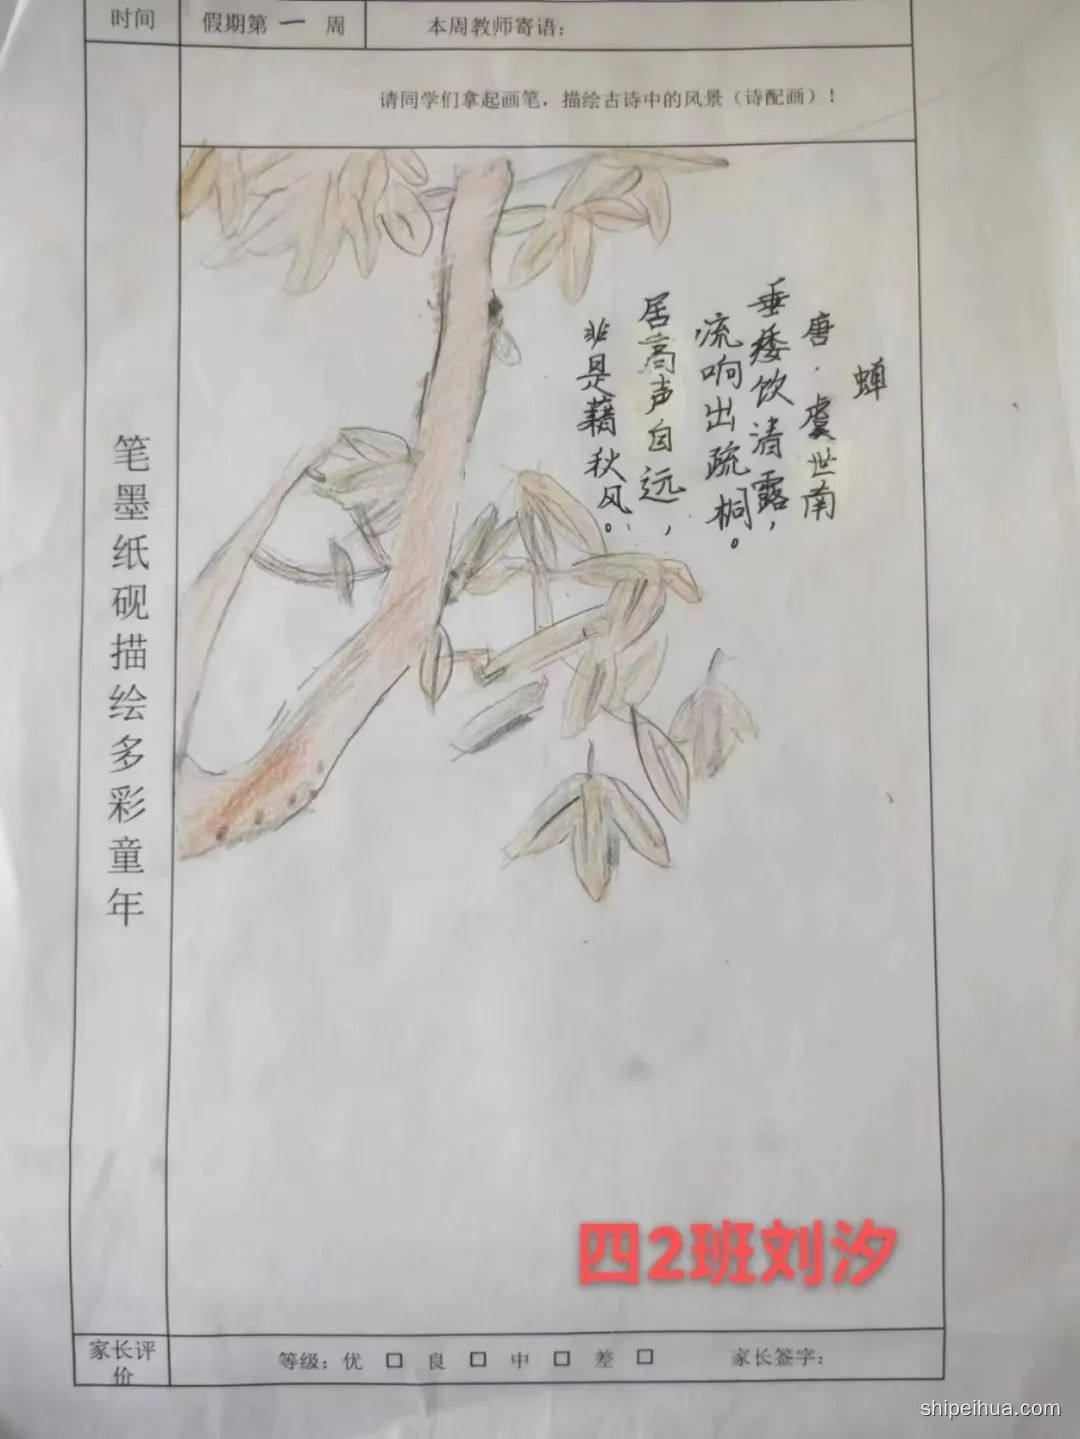 时间
假期第 一 周
本周教师寄语：
请同学们拿起画笔，描绘古诗中的风景（诗配画）！
笔墨纸砚描绘多彩童年
蝉
唐．虞世南
垂緌饮清露，
流响出疏桐。
居高声自远，
非是藉秋风。
四2班刘汐
家长评价
等级：优 □ 良 □ 中 □ 差 □
家长签字：
shipeihua.com